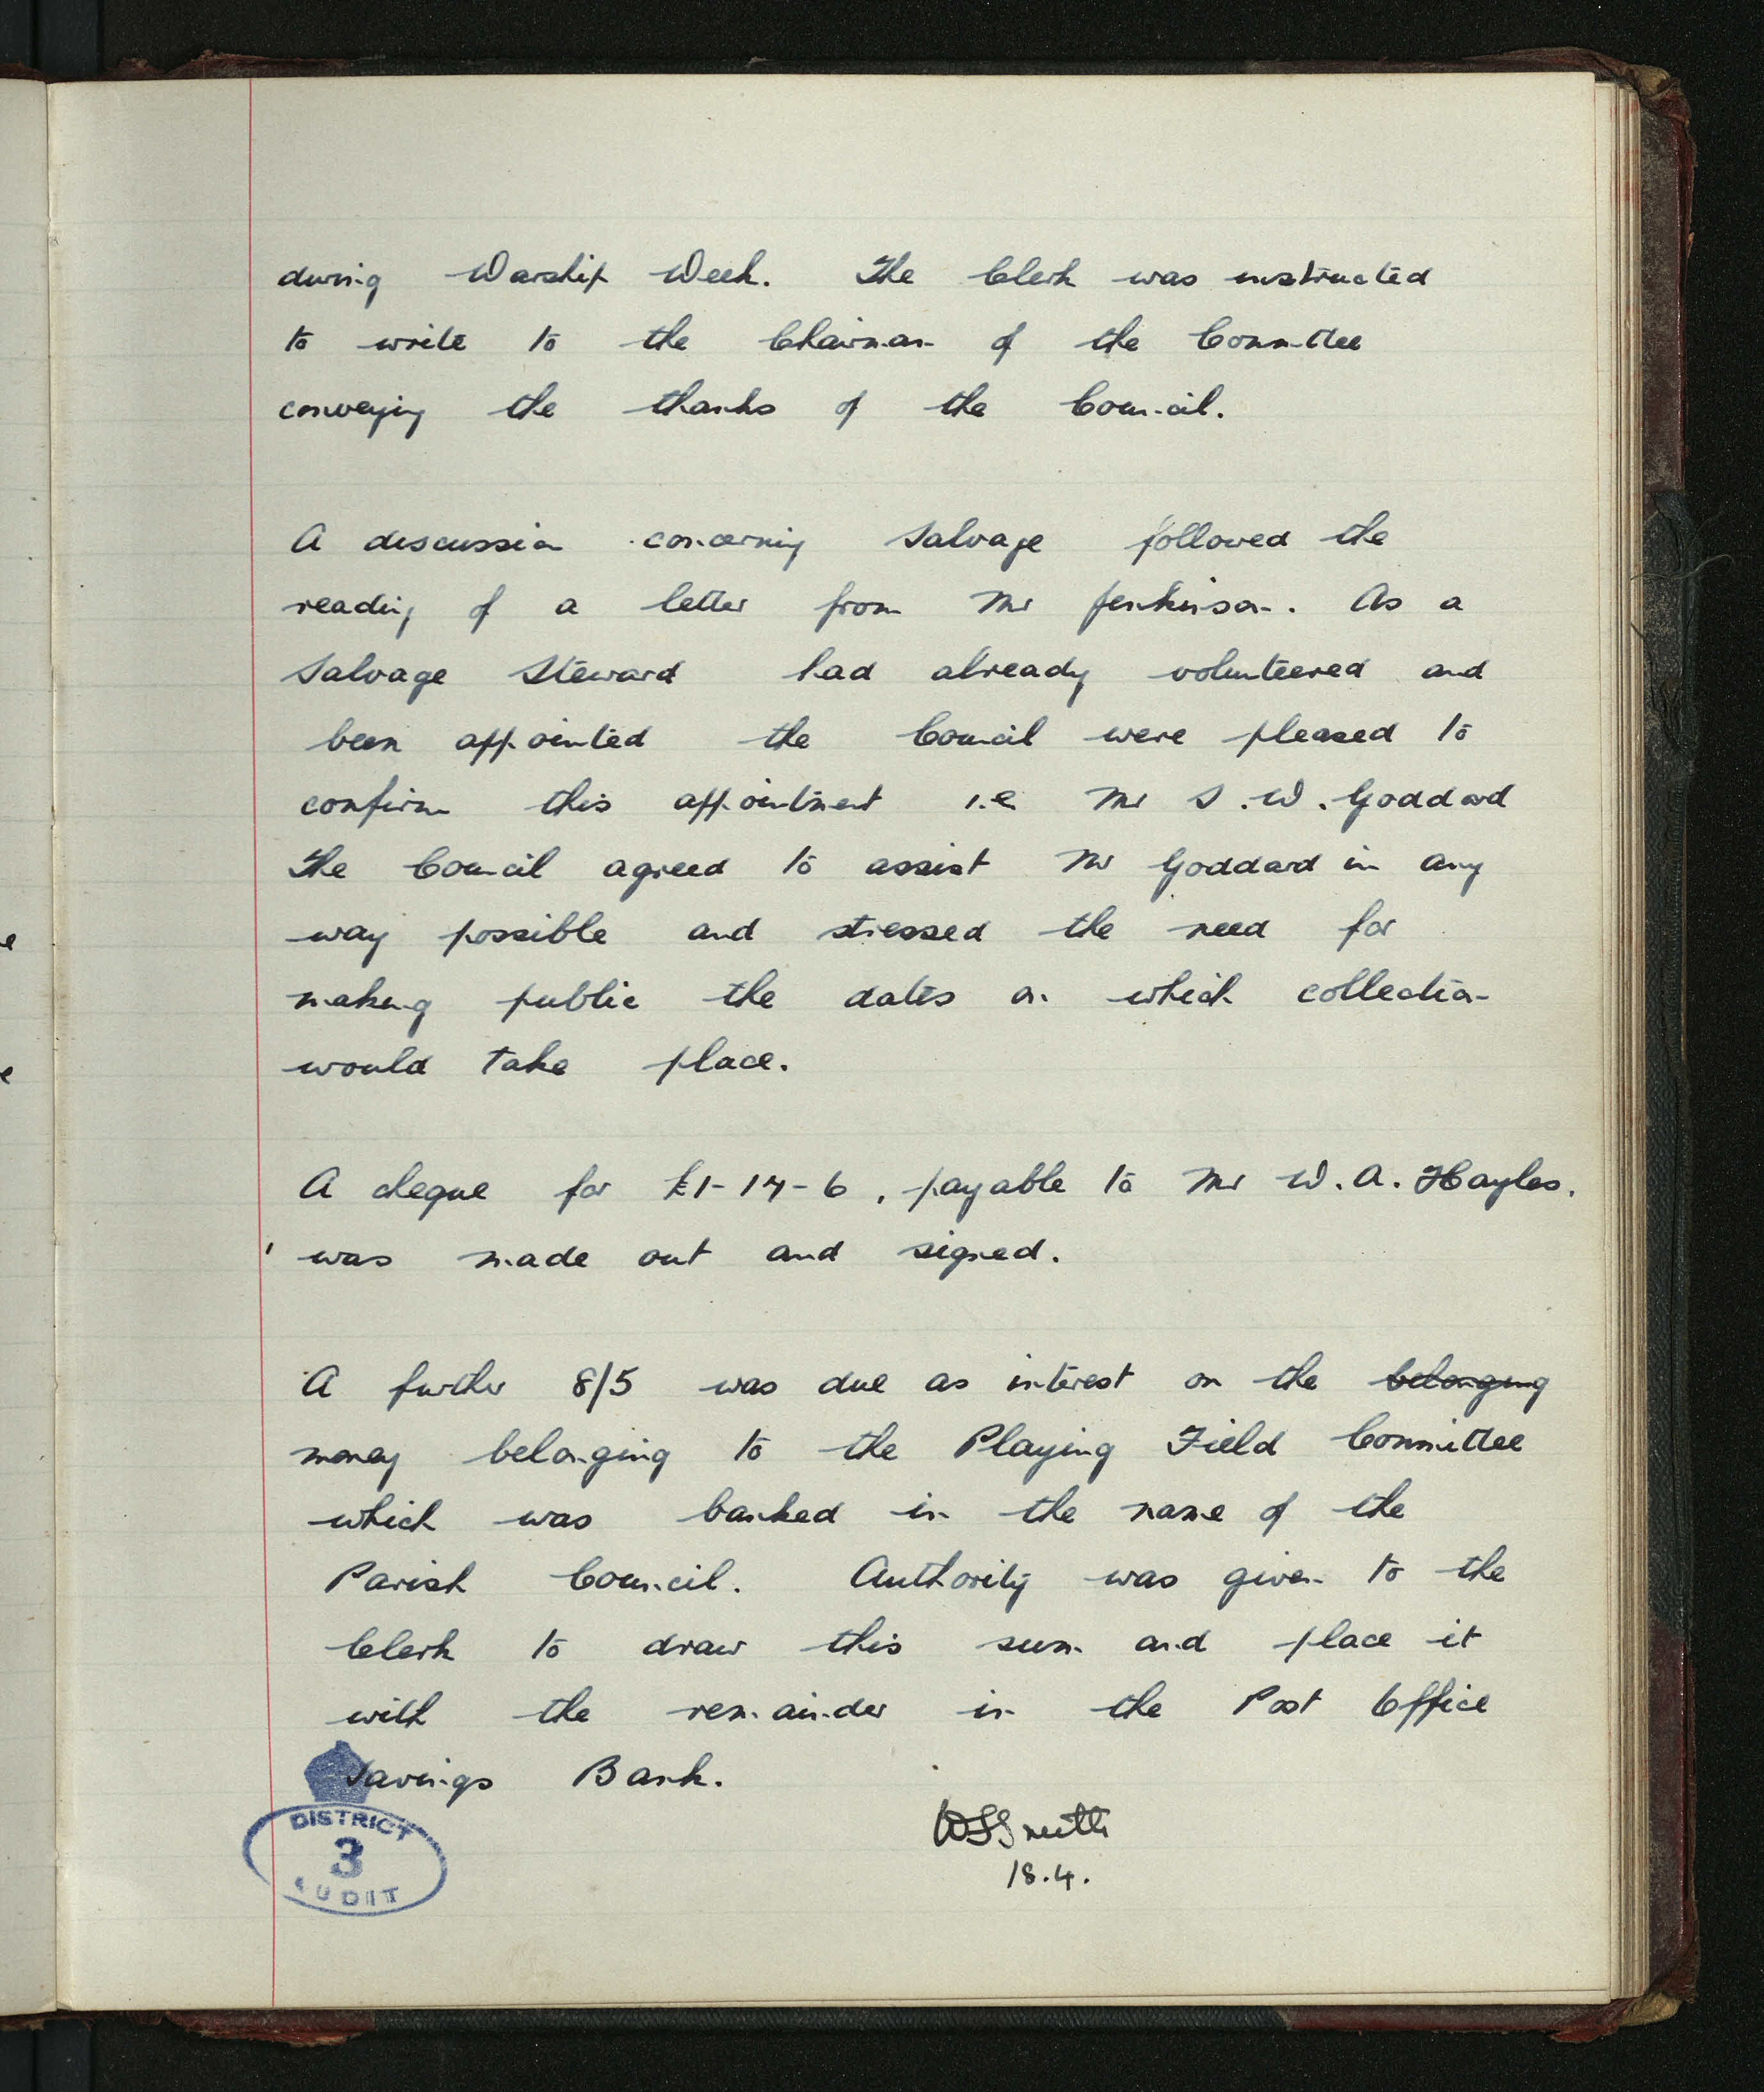 during Warship Week. The Clerk was instructed
to write to the Chairman of the Committee
conveying the thanks of the Council.
A discussion concerning Salvage followed the
reading of a letter from Mr Jenkinson. As a
Salvage Steward had already volunteered and
been appointed the Council were pleased to
confirm this appointment i.e Mr S.W. Goddard
The Council agreed to assist Mr Goddard in any
way possible and stressed the need for
making public the dates on which collection
would take place.
A cheque for £1-14-6, payable to Mr W.A. Hayles.
was made out and signed.
A further 8/5 was due as interest on the belonging
money belonging to the Playing Field Committee
which was banked in the name of the
Parish Council. Authority was given to the
Clerk to draw this sum and place it
with the remainder in the Post Office
Savings Bank.
Smith
18.4.
DISTRICT
3
AUDIT